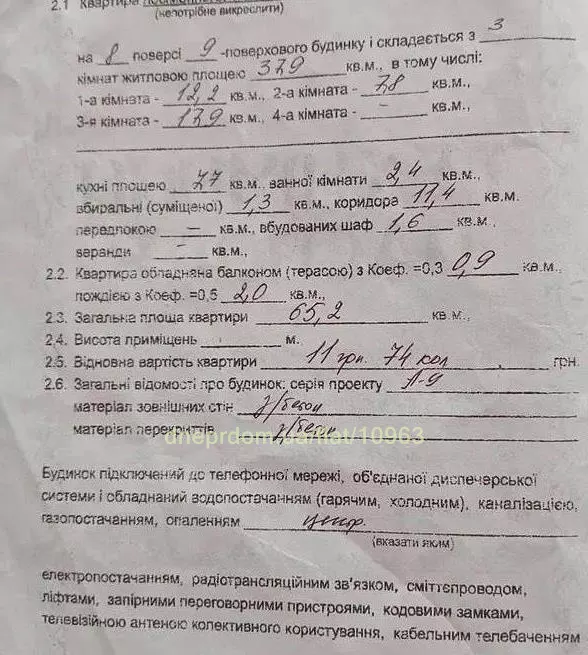 2.1 Квартира
(непотрібне викреслити)
на 8 поверсі 9 -поверхового будинку і складається з 3
кімнат житловою площею 37,9 кв.м., в тому числі:
1-а кімната - 12,2 кв.м., 2-а кімната - 7,8 кв.м.,
3-я кімната - 17,9 кв.м., 4-а кімната - – кв.м.,
кухні площею 7,7 кв.м., ванної кімнати 2,4 кв.м.,
вбиральні (суміщеної) 1,3 кв.м., коридора 11,4 кв.м.
передпокою – кв.м., вбудованих шаф 1,6 кв.м.,
веранди – кв.м.,
2.2. Квартира обладнана балконом (терасою) з Коеф. =0,3 0,9 кв.м.
лоджією з Коеф. =0,5 2,0 кв.м.,
2.3. Загальна площа квартири 65,2 кв.м.,
2.4. Висота приміщень м.
2.5. Відновна вартість квартири 11 грн. 74 коп грн.
2.6. Загальні відомості про будинок: серія проекту
матеріал зовнішних стін з/бетон
матеріал перекриттів з/бетон
dneprdom.ua/flat/10963
Будинок підключений до телефонної мережі, об'єднаної диспечерської
системи і обладнаний водопостачанням (гарячим, холодним), каналізацією,
газопостачанням, опаленням центр.
(вказати яким)
електропостачанням, радіотрансляційним зв'язком, сміттєпроводом,
ліфтами, запірними переговорними пристроями, кодовими замками,
телевізійною антеною колективного користування, кабельним телебаченням